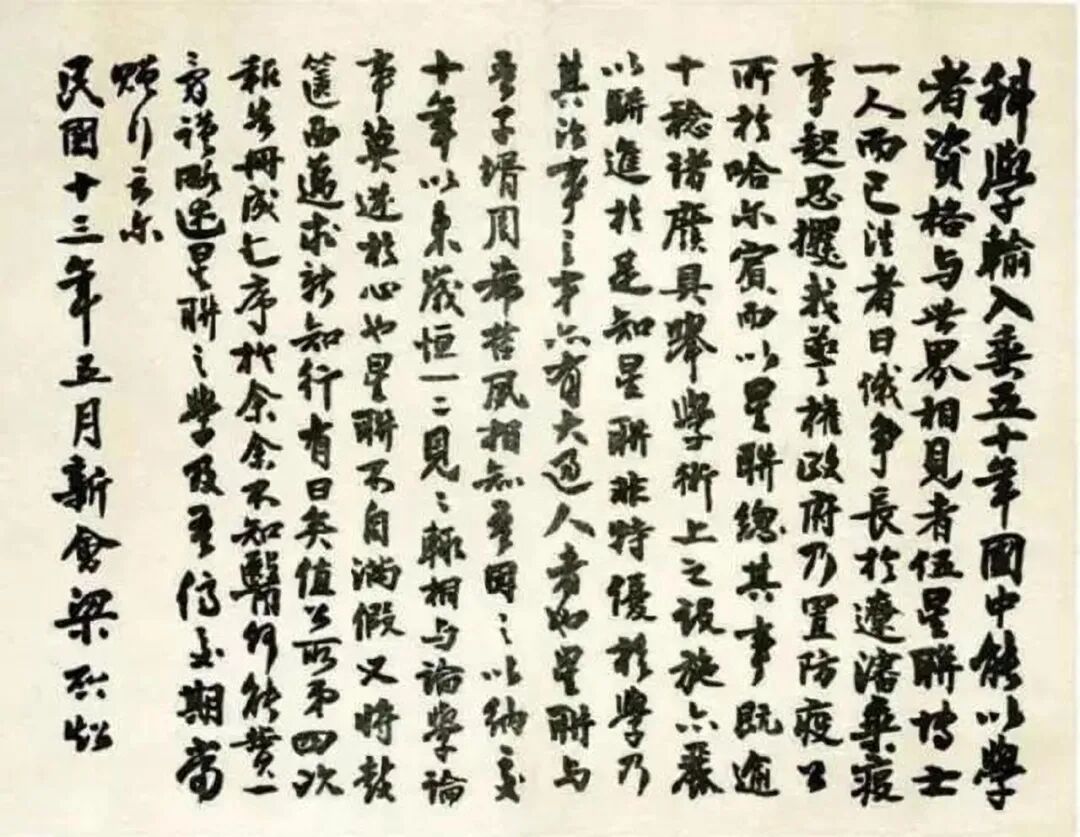 科學輸入垂五十年國中能以學
者資格与世界相見者伍星聯博士
一人而已往者日俄爭長於遼瀋藥疫
事起思攫我藝權政府乃置防疫公
所於哈尔賓而以星聯總其事既逾
十稔諸廢具舉學術上之設施亦嚴
以駢進於是知星聯非特優於學乃
其治事之才亦有大過人者也星聯与
吾子壻周希哲夙相知吾因之以納交
十年以來歲恒一二見見輒相与論學論
事莫逆於心也星聯不自滿假又將鼓
篋西邁求新知行有日矣值公所第四次
報告冊成乞序於余余不知醫何能贊一
辭謹略述星聯之學及吾儕交期當
贈行云尔
民國十三年五月新會梁啟超